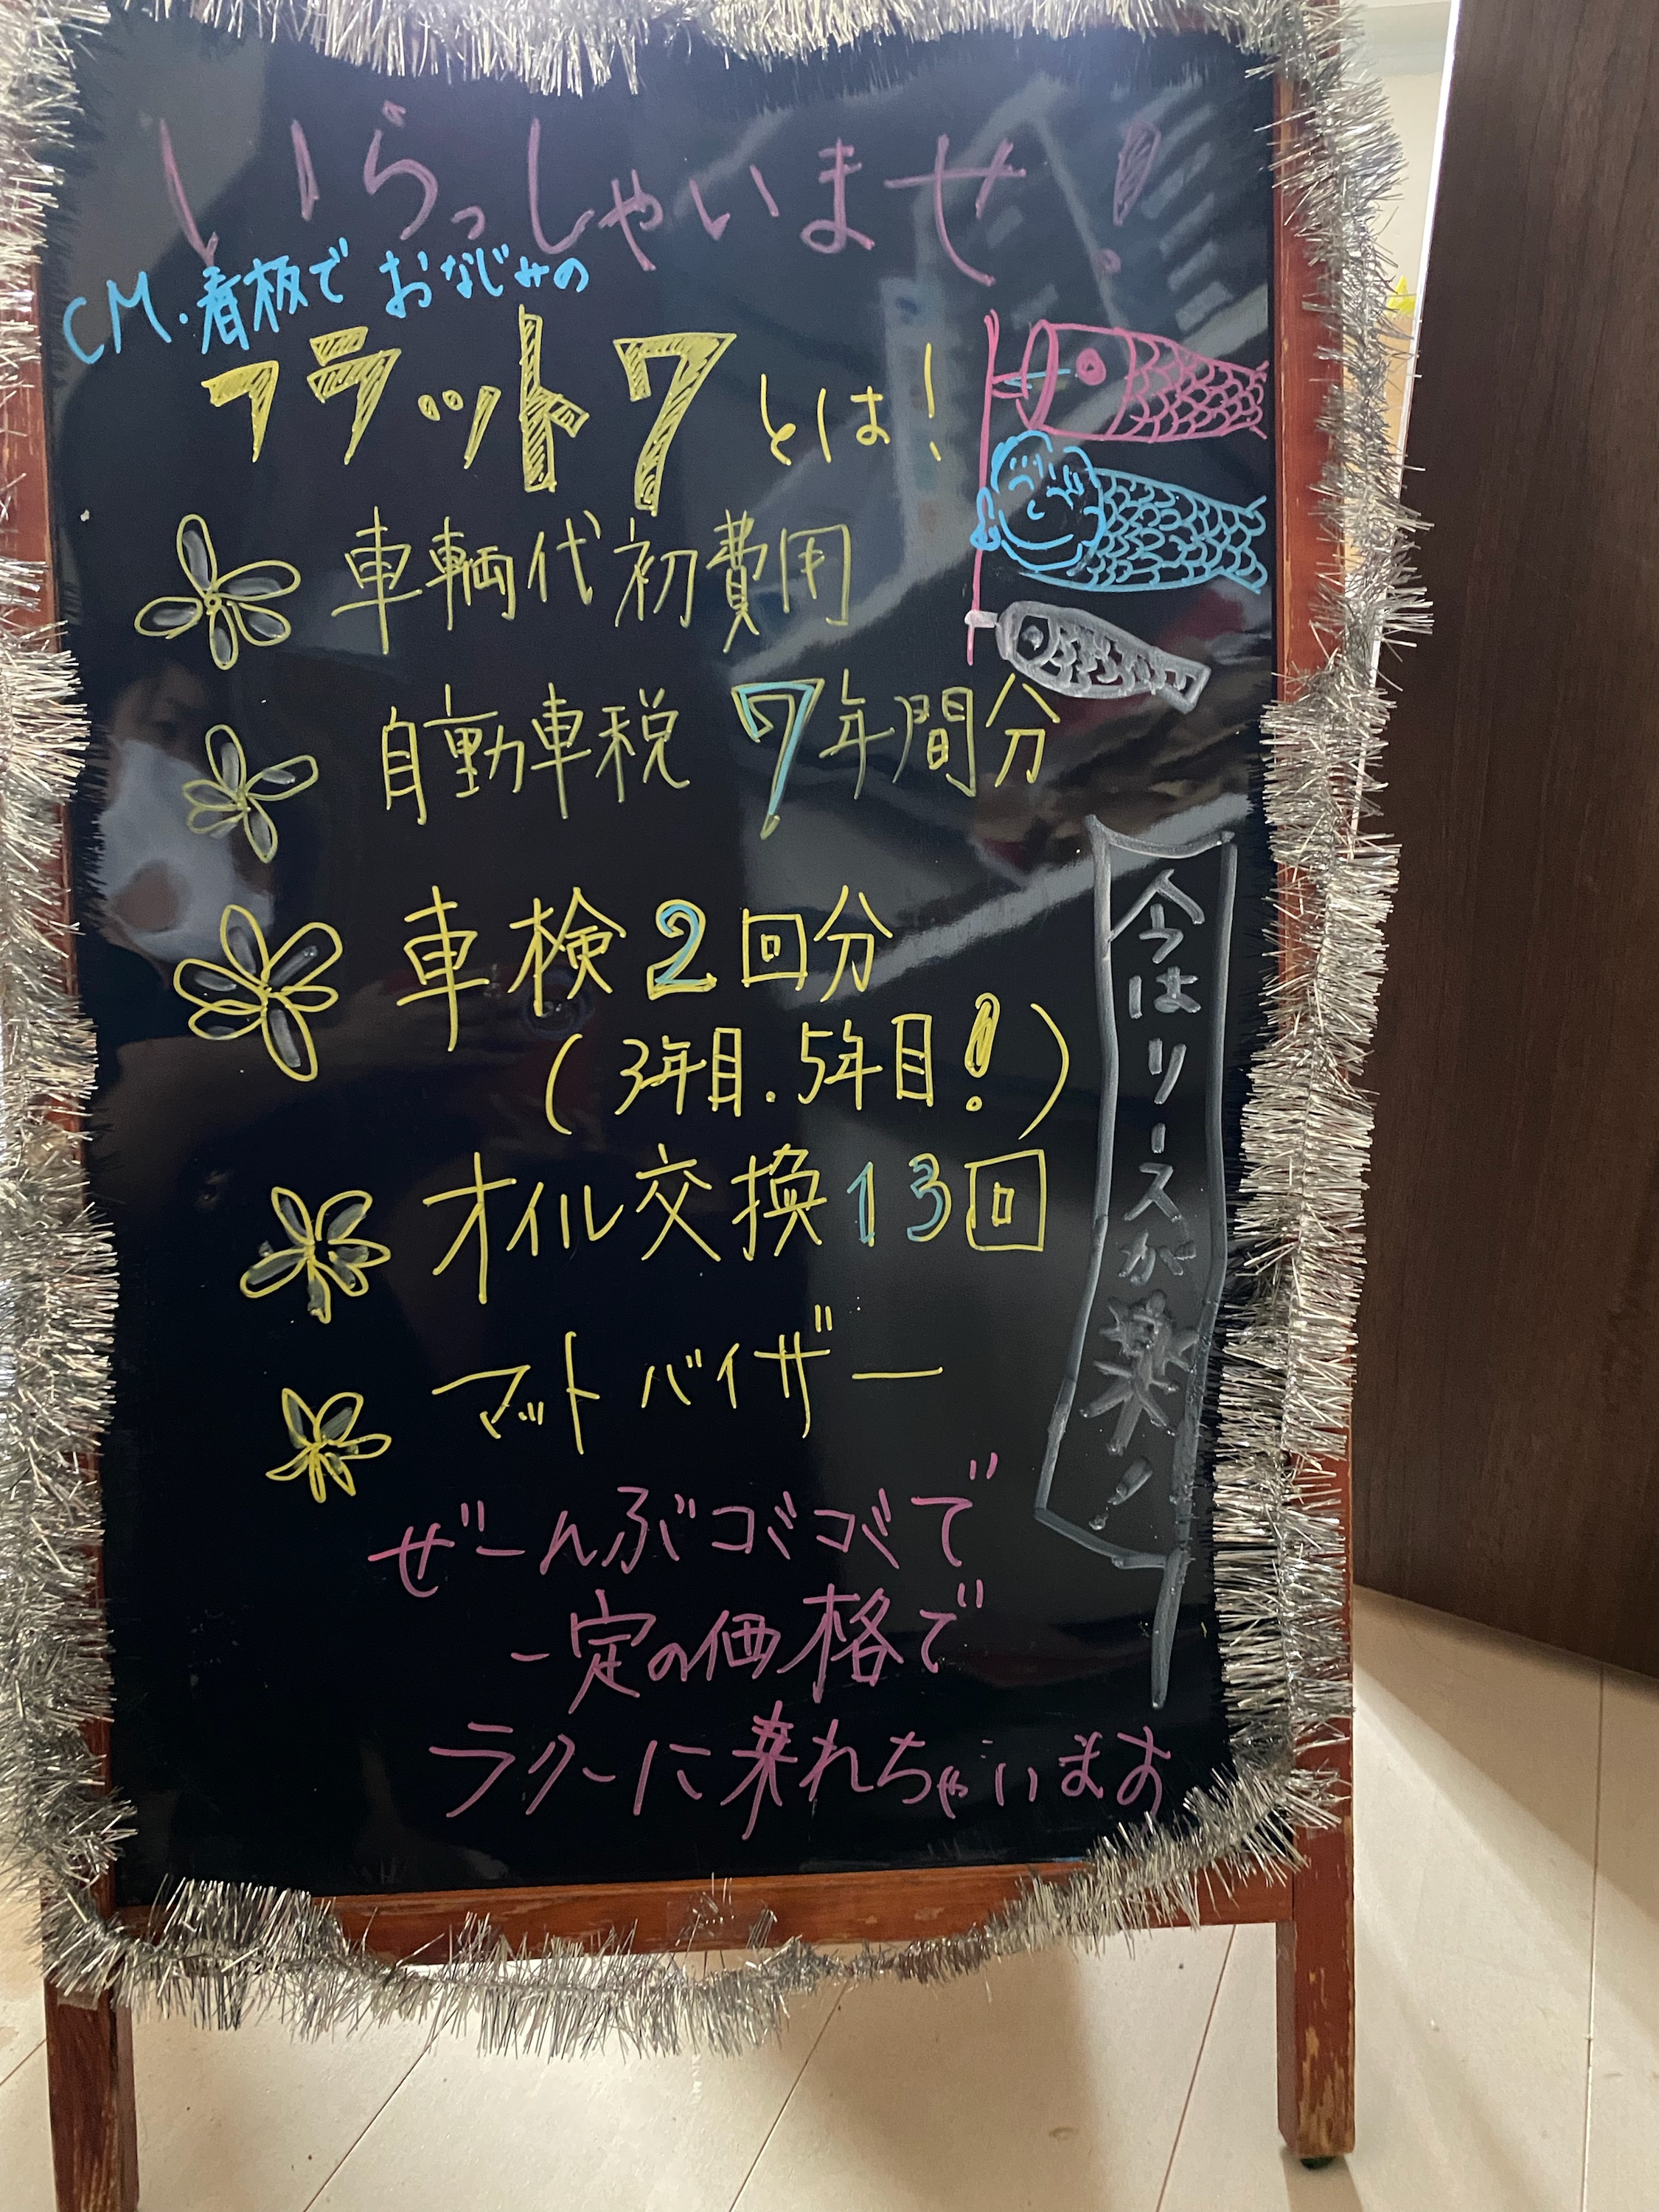 いらっしゃいませ!
CM・看板でおなじみの
フラット7とは!
車輌代初費用
自動車税 7年間分
車検2回分
(3年目.5年目!)
オイル交換13回
マットバイザー
ぜーんぶコミコミで
一定の価格で
ラクーに乗れちゃいます
今はリースが楽!